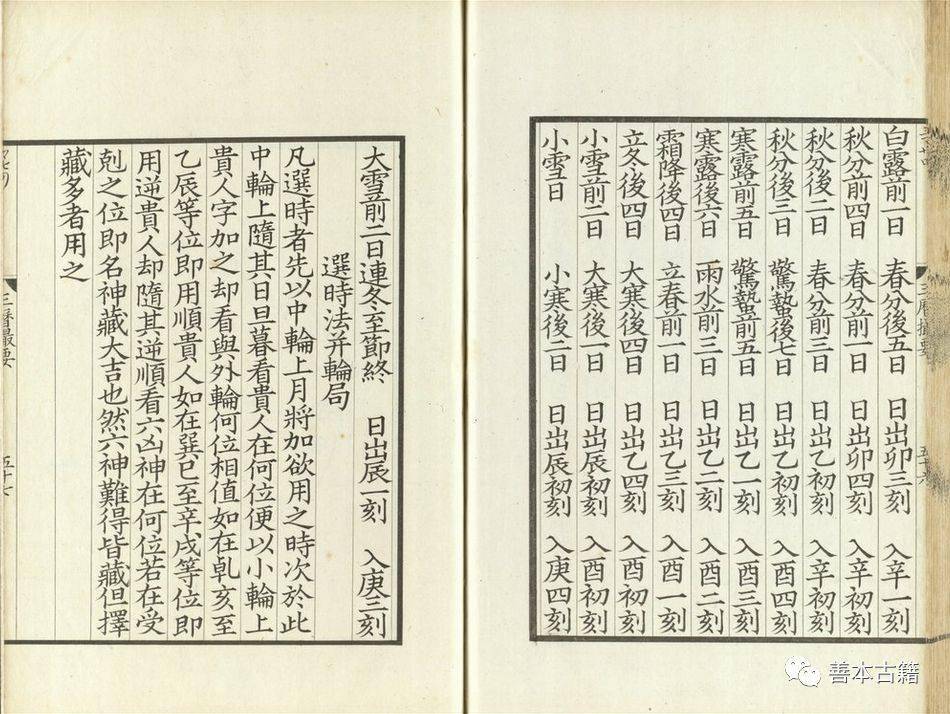 白露前一日 春分後五日 日出卯三刻 入辛一刻
秋分前四日 春分前一日 日出卯四刻 入辛初刻
秋分後二日 春分前三日 日出乙初刻 入辛初刻
秋分後三日 驚蟄後七日 日出乙初刻 入酉四刻
寒露前五日 驚蟄前五日 日出乙一刻 入酉三刻
寒露後六日 雨水前三日 日出乙二刻 入酉二刻
霜降後四日 立春前一日 日出乙三刻 入酉一刻
立冬後四日 大寒後四日 日出乙四刻 入酉初刻
小雪前二日 大寒後一日 日出辰初刻 入酉初刻
小雪日 小寒後二日 日出辰初刻 入庚四刻
大雪前二日連冬至節終 日出辰一刻 入庚三刻
選時法并輪局
凡選時者先以中輪上月將加欲用之時次於此
中輪上隨其日旦暮看貴人在何位便以小輪上
貴人字加之却看與外輪何位相值如在乹亥至
乙辰等位即用順貴人如在巽巳至辛戌等位即
用逆貴人却隨其逆順看六凶神在何位若在受
剋之位即名神藏大吉也然六神難得皆藏但擇
藏多者用之
三曆撮要
五十七
善本古籍